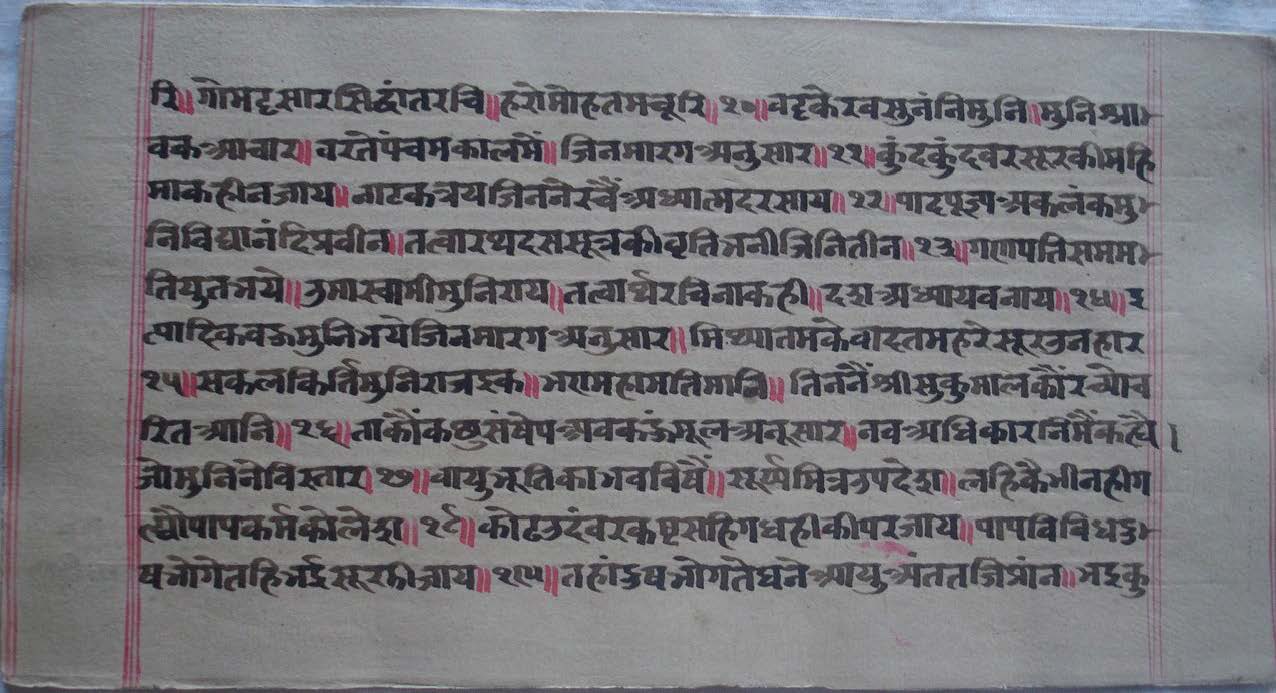 रि॥गोमट्टसारसिद्धांतरचि॥हरोमोहतमचूरि॥१०॥वट्टकेरवसुनंनिमुनि॥मुनिश्रा
वकआचार॥वरतेपंचमकालमैं॥जिनमारगअनुसार॥११॥कुंदकुंदवरसूरकीमहि
माकहीनजाय॥नाटकत्रयजिननेरचैंअध्यात्मदरसाय॥१२॥पादपूज्यअकलंकमु
निविद्यानंदिप्रवीन॥तत्वारथदससूत्रकीवृतिभनीजिनितीन॥१३॥गणपतिसमम
तियुतभये॥उमास्वामीमुनिराय॥तत्वार्थरचिनाकही॥दशअध्यायवनाय॥१४॥इ
त्यादिकवऊमुनिभयेजिनमारगअनुसार॥मिथ्यातमकेवादतमहरेसूरउनहार
१५॥सकलकिर्तिमुनिराजइक॥भरामहामतिमानि॥तिननैंश्रीसुकुमालकौंरच्योच
रितआनि॥१६॥ताकौंकछुसंषेपअवकऊंमूलअनूसार॥नवअधिकारनिमैंकह्यै।
जोमुनिनेविस्तार॥१७॥वायुभूतिकाभवविषैं॥सूर्य्यमित्रउपदेश॥लहिकैभीनहीग
ल्यौपापकर्मकोलेश॥१८॥कोढउदंवरकष्टसहिगधहीकीपरजाय॥पापविविधदु
षभोगेतहिभईसूरकीजाय॥१९॥तहांदुषभोगतेघनेआयुअंततजिप्रांन॥भइकु